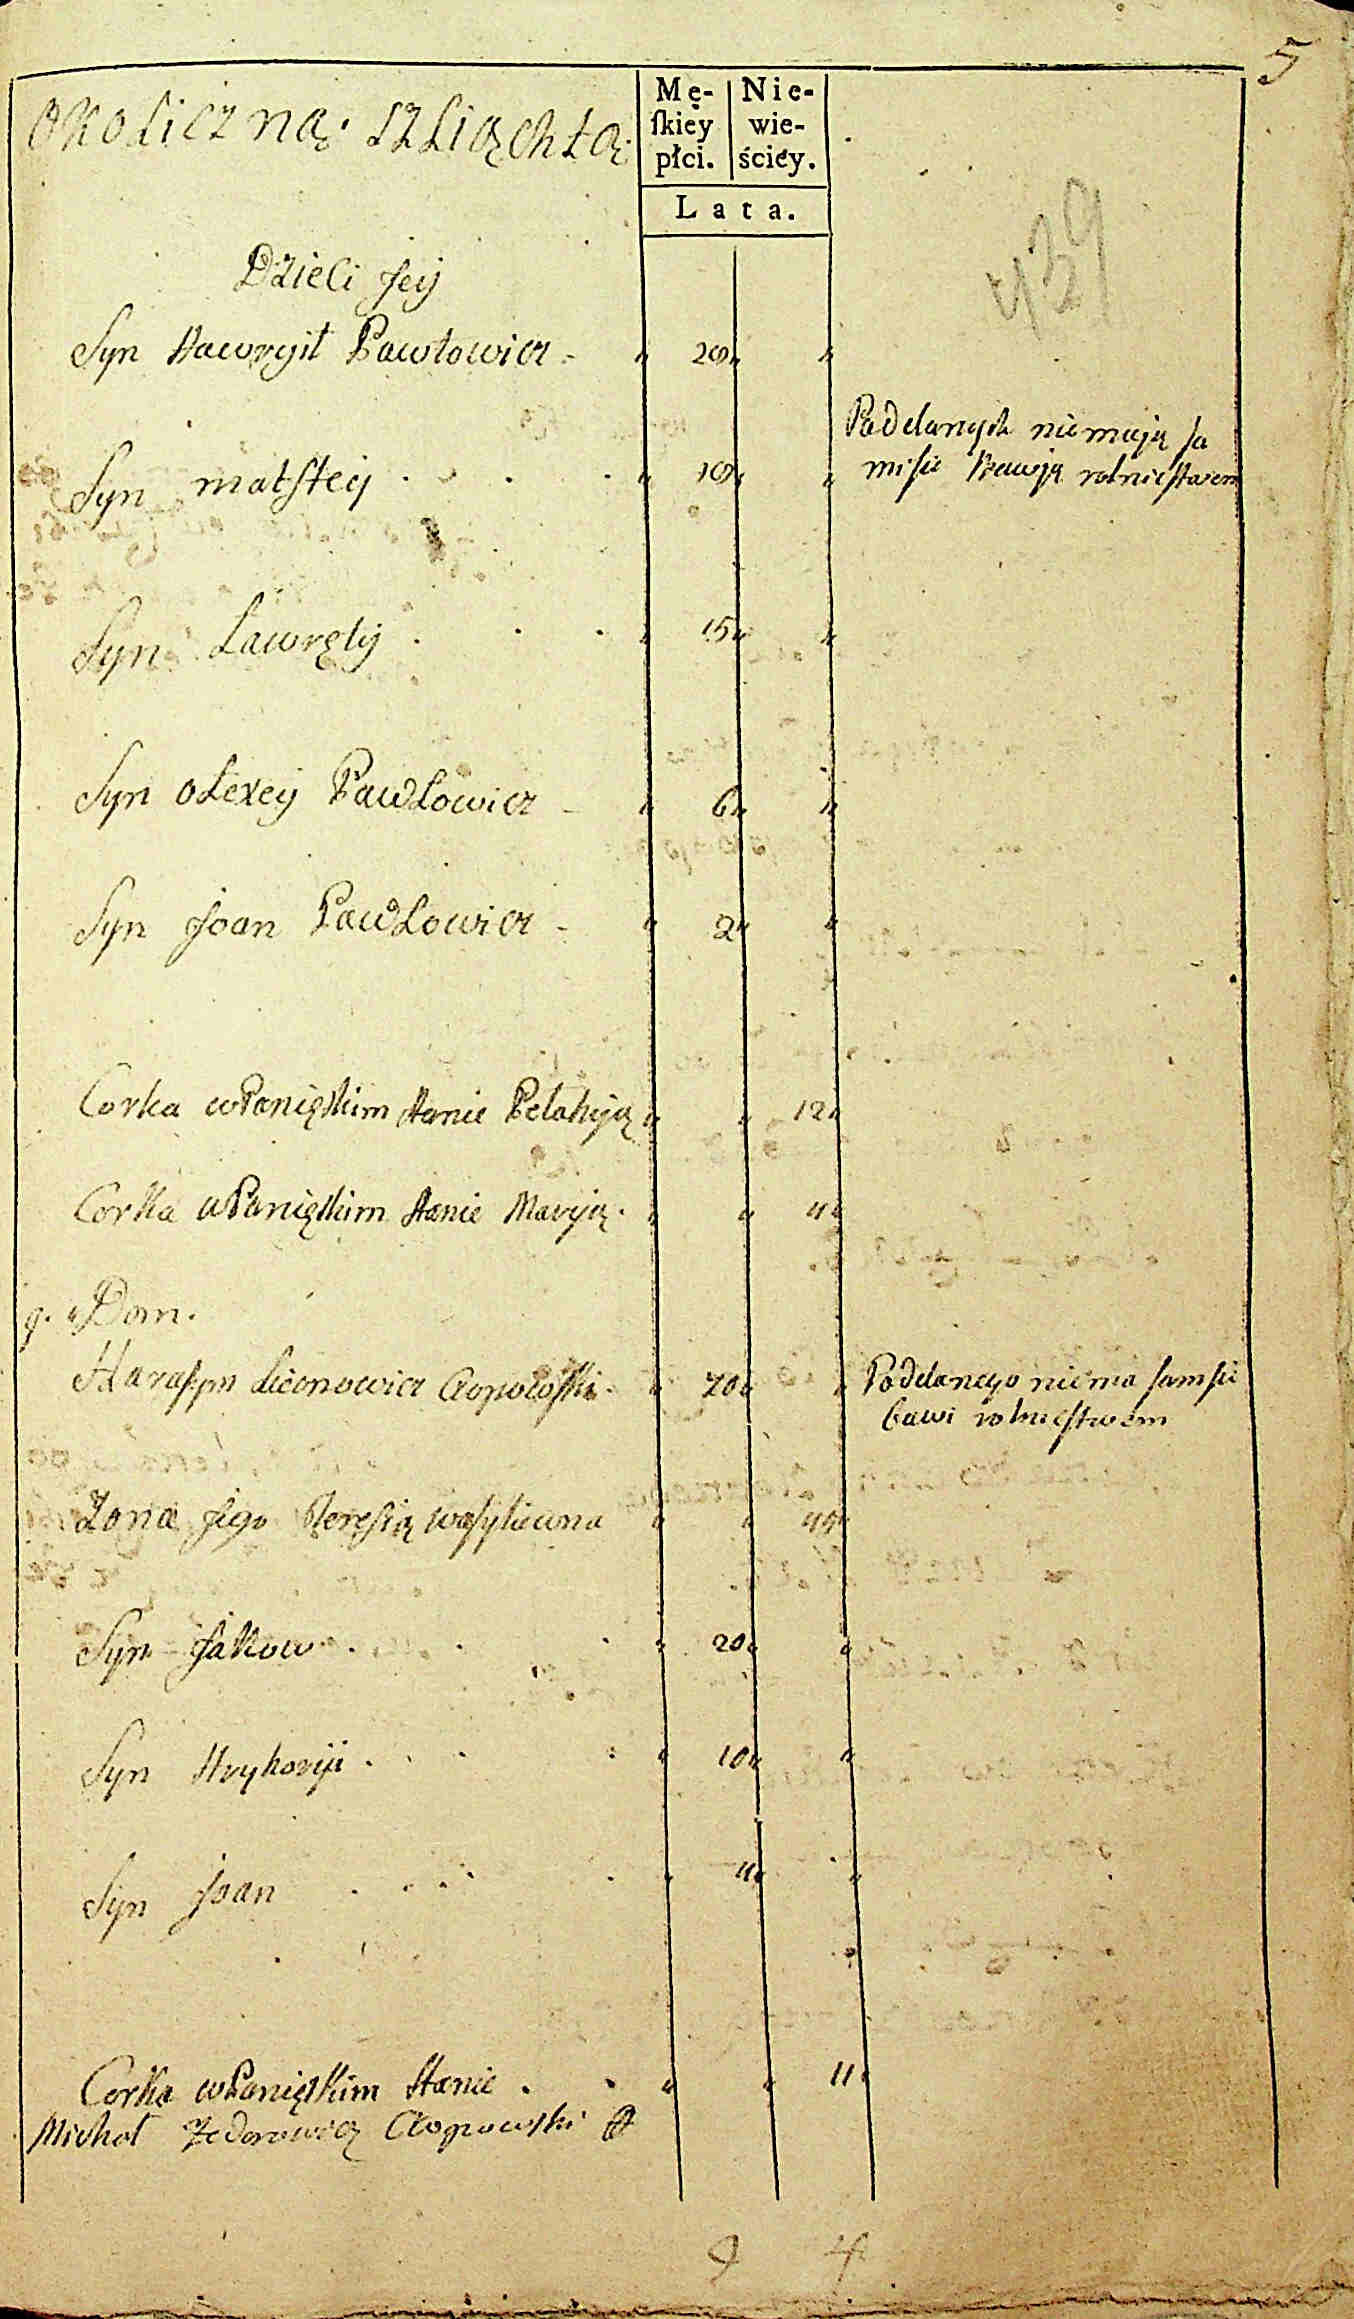 5
Okoliczną. szliąchtą.
Mę-
ſkiey
płci.
Nie-
wie-
ściéy.
Lata.
439
Dzieci jeij
Syn Hawryił Pawłowicz - " 20 " "
Poddanych niemają sa
misię bawją rolnictwem
Syn matfteij . . . . " 10 " "
Syn Ławręty . . . " 15 " "
Syn Olexeij Pawłowicz - " 6 " "
Syn Joan Pawłowicz - " 2 " "
Corka wPanięskim stanie Pelahyją " " 12 "
Corka wPanięskim stanie Maryją . " " 4 "
9. " Dom.
Harasym Leonowicz . " 70 " "
Poddanego niema samsię
bawi rolnictwem
Zona jego Teręsią wasyliewna " " 49 "
Syn Jakow . . . " 20 " "
Syn Hryhoryi . . . . " 10 " "
Syn Joan . . . . . " 4 " "
Corka wPanięskim stanie . . " " 11 "
Michał Fedorowicz
9 4